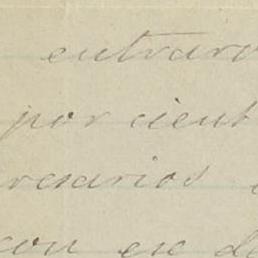 entraro
por cient
resarios
con ese de